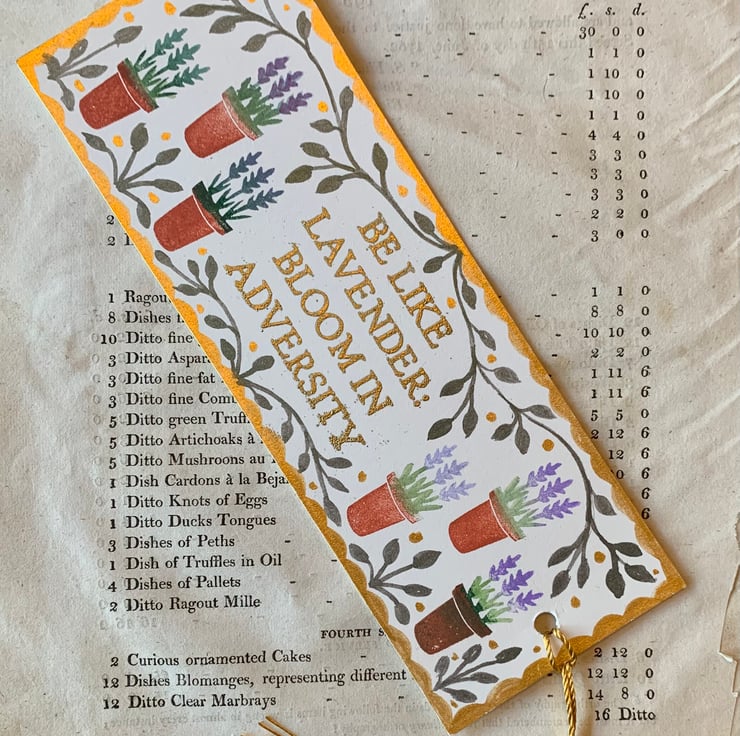 £. s. d.
30 0 0
1 1 0
1 10 0
1 10 0
1 1 0
4 4 0
3 3 0
3 3 0
3 3 0
2 2 0
2
3 0 0
2
BE LIKE
LAVENDER:
BLOOM IN
ADVERSITY
1 Ragou 1 1 0
8 Dishes 8 8 0
10 Ditto fine 10 10 0
3 Ditto Aspar 2 2 0
3 Ditto fine fat 1 11 6
3 Ditto fine Com 1 11 6
5 Ditto green Truff 5 5 0
5 Ditto Artichoaks à 2 12 6
5 Ditto Mushrooms au 12 6
1 Dish Cardons à la Beja 0 6
1 Ditto Knots of Eggs 6
1 Ditto Ducks Tongues 6
3 Dishes of Peths
1 Dish of Truffles in Oil
4 Dishes of Pallets
2 Ditto Ragout Mille
FOURTH S
2 Curious ornamented Cakes 2 12 0
12 Dishes Blomanges, representing different 12 12 0
12 Ditto Clear Marbrays 14 8 0
16 Ditto